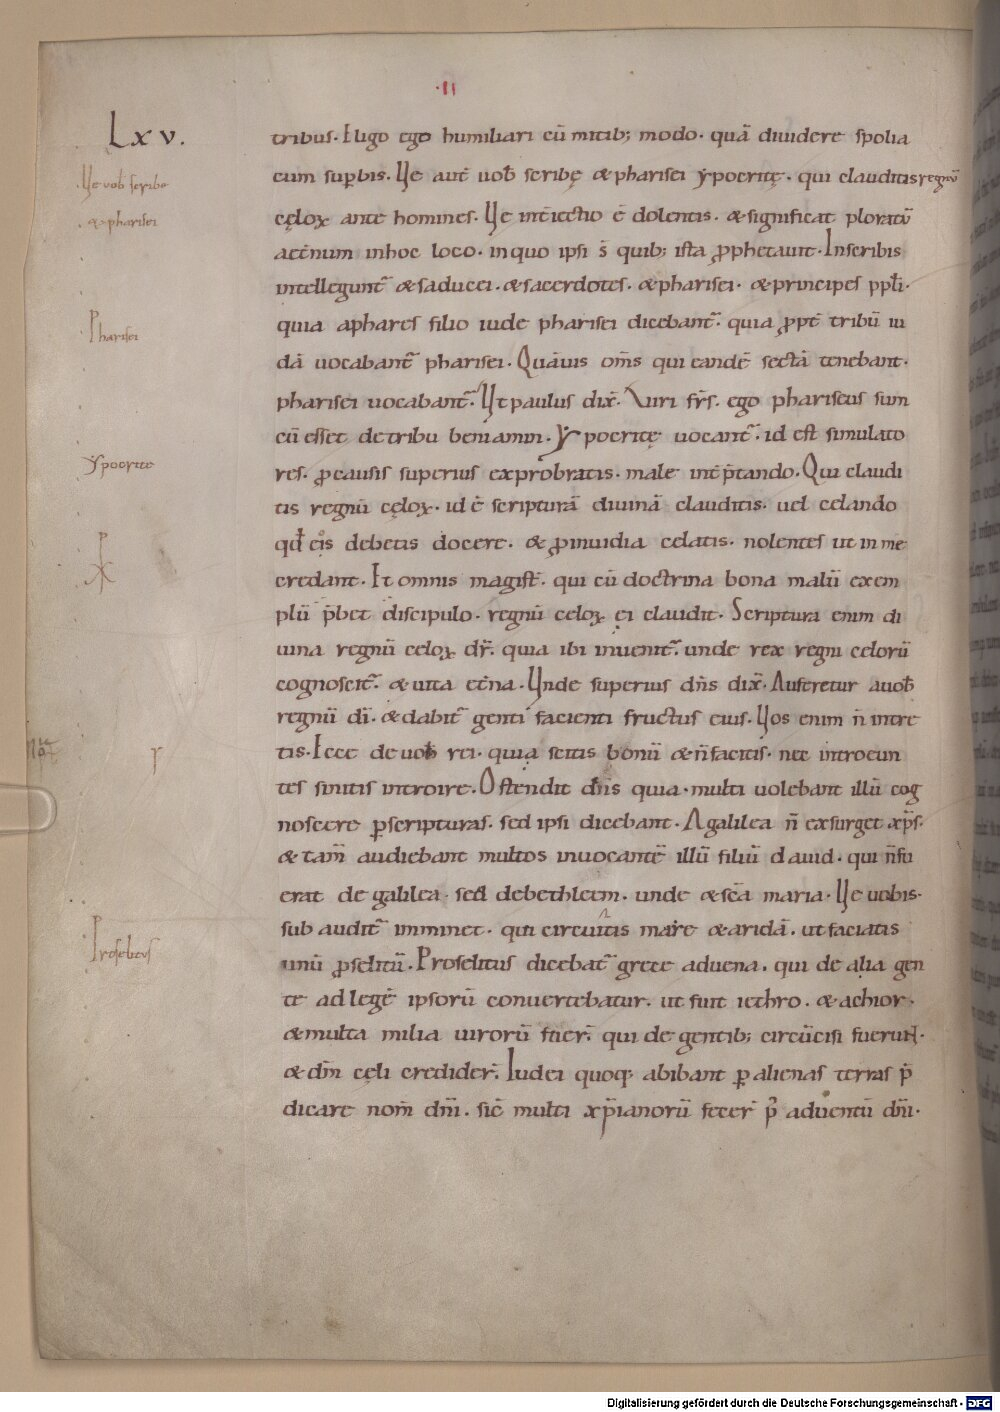 ·II·
Lxv.
tribus. Eligo ego humiliari cū mitib; modo. quā diuidere spolia
cum supbis. Ve aut̄ uob̄ scribę & pharisei ypocritę. qui clauditis regnū
Ve uob̄ scribe
& pharisei
cęloꝝ ante homines. Ve int̄iectio ē dolentis. & significat ploratū
aet̄num inhoc loco. inquo ipsi s̄ quib; ista ꝓphetauit. Inscribis
intellegunt̄ & saducei. & sacerdotes. & pharisei. & principes ppl̄i.
Pharisei
quia aphares filio iude pharisei dicebant̄. quia ꝓpt̄ tribū iu
dā uocabant̄ pharisei. Quāuis om̄s qui eandē sectā tenebant.
pharisei uocabant̄. Vt paulus dix̄. Viri fr̄s. ego phariseus sum
cū esset de tribu beniamin. Ypocritę uocant̄. id est simulato
Ypocrite
res. ꝓcausis superius exprobratis. male int̄p̄tando. Qui claudi
tis regnū cęloꝝ. id ē scripturā diuinā clauditis. uel celando
qd̄ eis debetis docere. & ꝓinuidia celatis. nolentes ut in me
credant. Et omnis magist̄. qui cū doctrina bona malū exem
plū p̄bet discipulo. regnū celoꝝ ei claudit. Scriptura enim di
uina regnū celoꝝ dr̄. quia ibi inuenit̄. unde rex regni celorū
cognoscit̄. & uita et̄na. Unde superius dn̄s dix̄. Auferetur auob̄
regnū dī. & dabit̄ genti facienti fructus eius. Vos enim n̄ intra
tis. Ecce de uob̄ rei. quia scitis bonū & n̄facitis. nec introeun
tes sinitis introire. Ostendit dn̄s quia multi uolebant illū cog
noscere ꝑscripturas. sed ipsi dicebant. A galilea n̄ exsurget xp̄s.
& tam̄ audiebant multos inuocantē illū filiū dauid. qui n̄fu
erat de galilea. sed debethleem. unde & sc̄a maria. Ve uobis.
sub audit̄ imminet. qui circuitis mare & aridā. ut faciatis
unū ꝓselitū. Proselitus dicebat̄ grece aduena. qui de alia gen
Proselitus
te ad legē ipsorū conuertebatur. ut fuit iethro. & achior.
& multa milia uirorū fuer̄. qui de gentib; circūcisi fuerunt.
& dm̄ cęli credider̄. Iudei quoq; abibant ꝑ alienas terras p̄
dicare nom̄ dm̄i. sic̄ multi xp̄ianorū fecer̄ p̄ aduentū dm̄i.
Digitalisierung gefördert durch die Deutsche Forschungsgemeinschaft - DFG